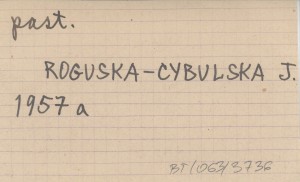 past.
ROGUSKA-CYBULSKA J.
1957 a
BT/063/3736